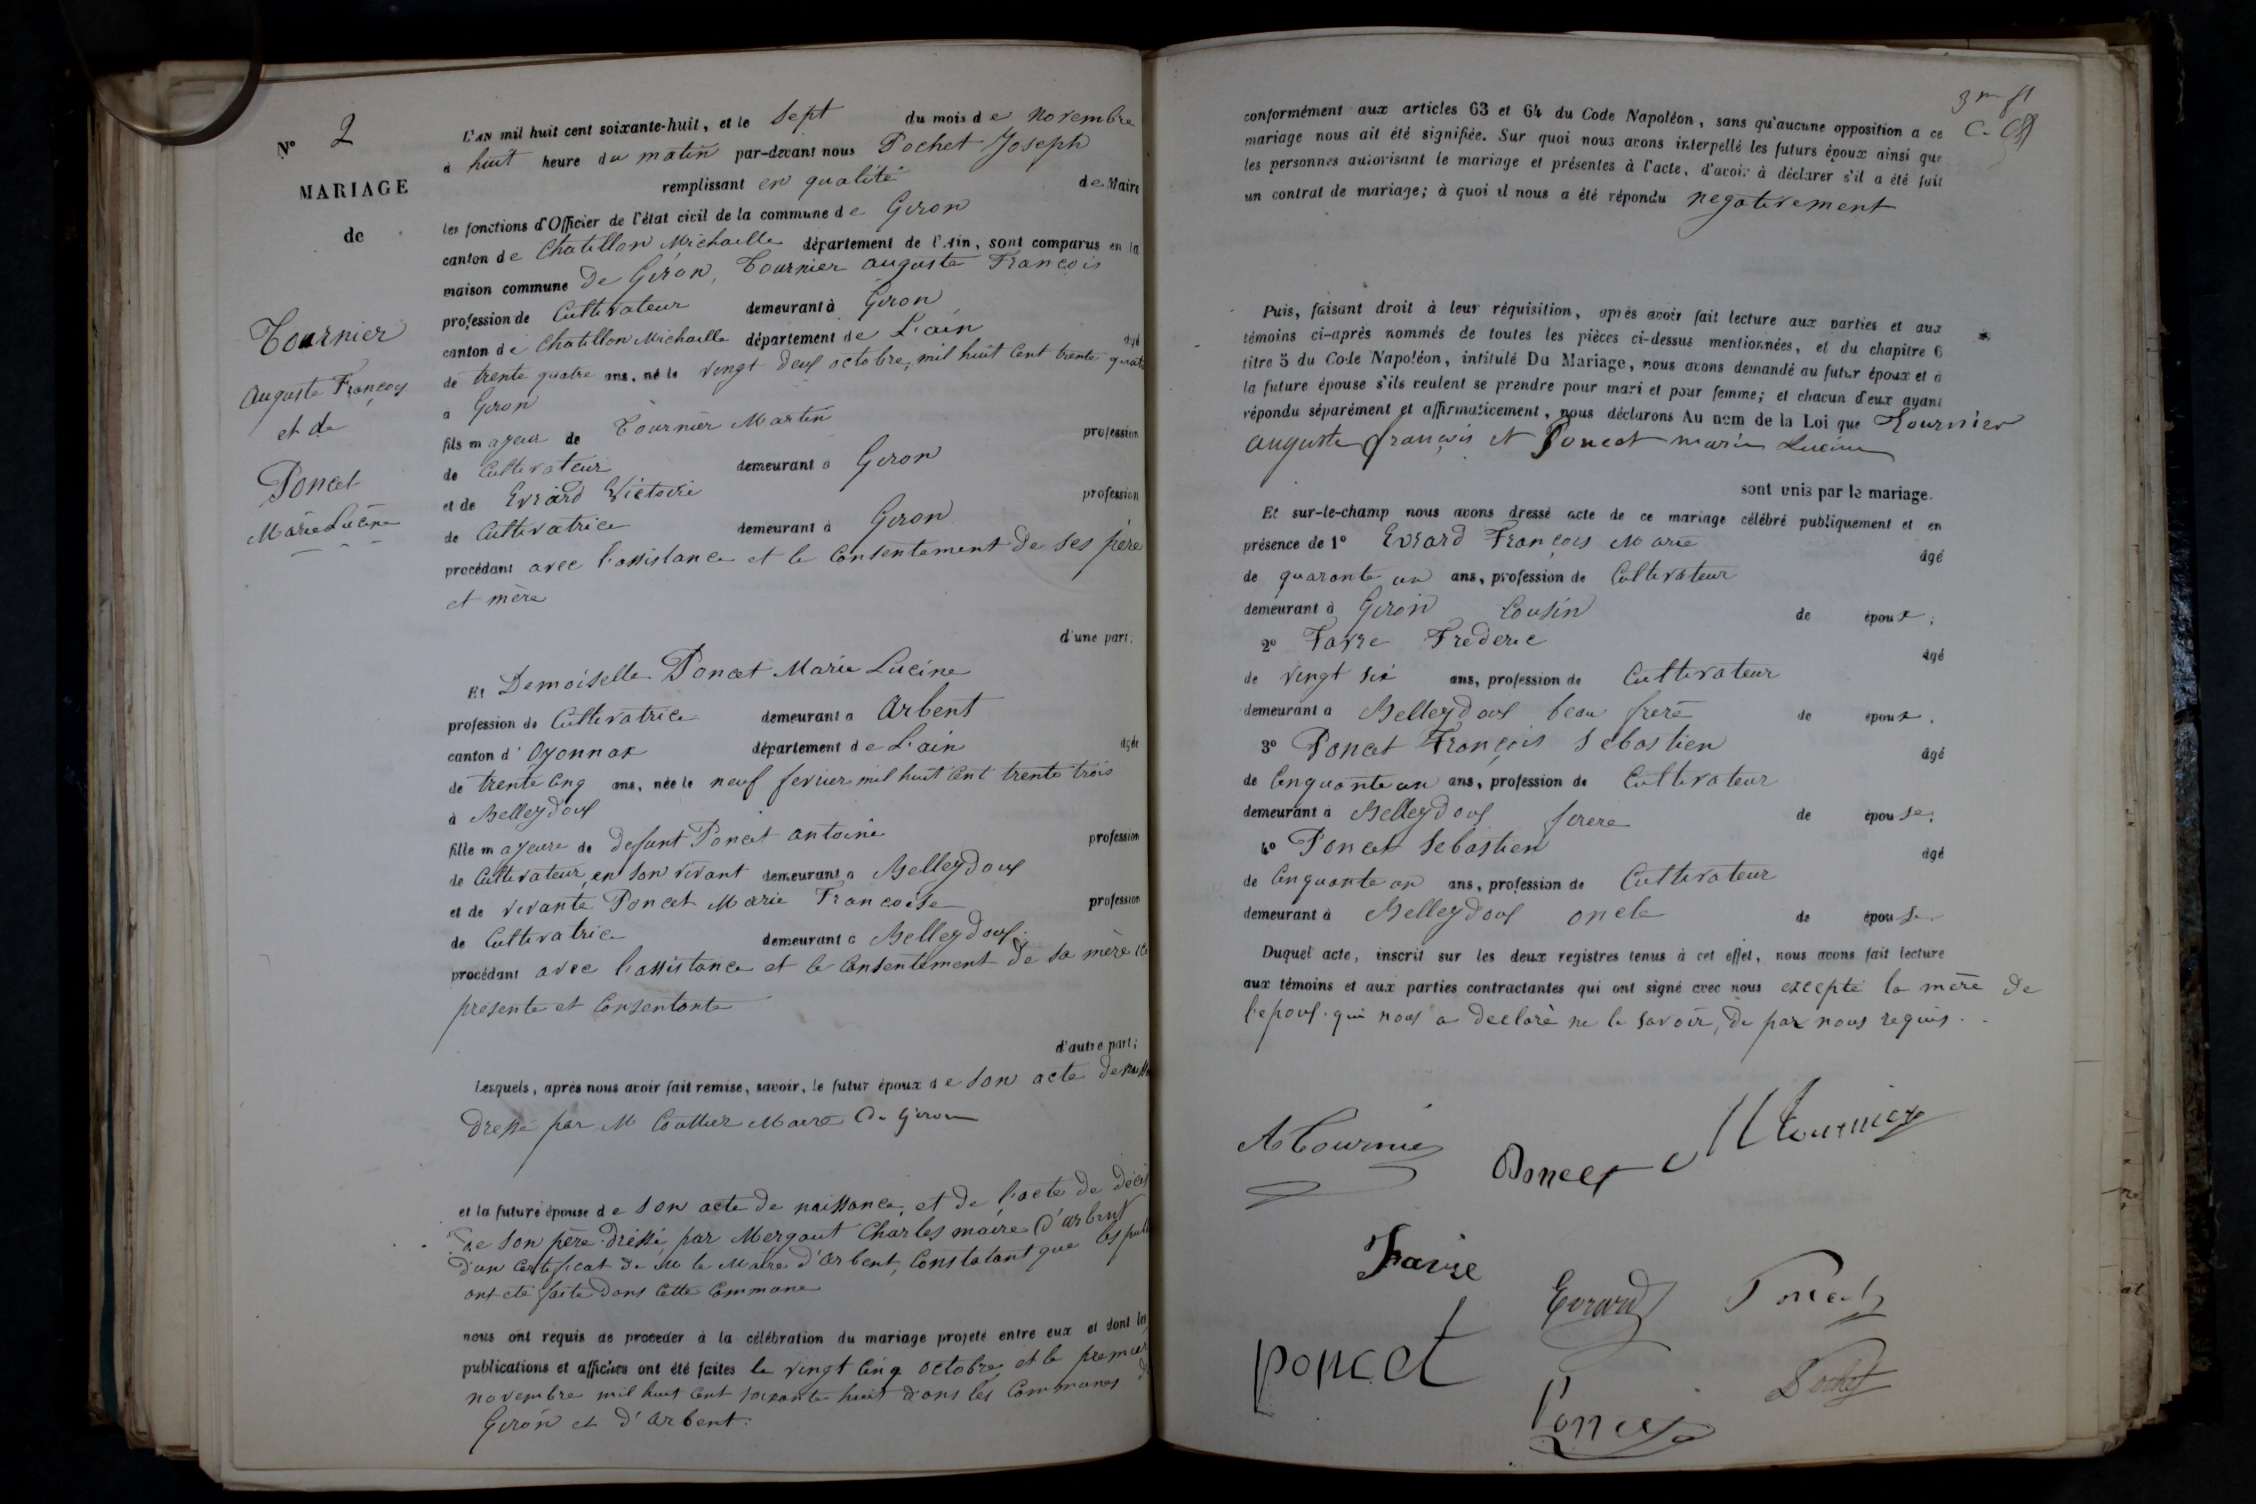 N° 2
MARIAGE
de
Tournier
Auguste François
et de
Poncet
Marie Lucine
L'AN mil huit cent soixante-huit, et le Sept du mois de novembre
à huit heure du matin par-devant nous Pochet Joseph
remplissant en qualité de Maire
les fonctions d'Officier de l'état civil de la commune de Giron
canton de Chatillon Michaille département de l'Ain, sont comparus en la
maison commune de Giron, Tournier Auguste François
profession de Cultivateur demeurant à Giron
canton de Chatillon Michaille département de L'ain âgé
de trente quatre ans, né le vingt deux octobre, mil huit cent trente quatre
à Giron
fils majeur de Tournier Martin profession
de Cultivateur demeurant à Giron
et de Evrard Victoire profession
de Cultivatrice demeurant à Giron
procédant avec l'assistance et le Consentement de ses père
et mère
d'une part;
Et Demoiselle Poncet Marie Lucine
profession de Cultivatrice demeurant à Arbent
canton d'Oyonnax département de L'ain âgée
de trente cinq ans, née le neuf fevrier mil huit cent trente trois
à Belleydoux
fille majeure de defunt Poncet antoine profession
de Cultivateur en son vivant demeurant à Belleydoux
et de vivante Poncet Marie Francoise profession
de Cultivatrice demeurant à Belleydoux.
procédant avec l'assistance et le Consentement de sa mère ici
presente et Consentante
d'autre part;
Lesquels, après nous avoir fait remise, savoir, le futur époux de son acte de
Dressé par M Maire de Giron
et la future épouse de son acte de naissance, et de l'acte de décès
de son père dressé par Mergaut Charles maire d'arbent
d'un certificat de M le Maire d'Arbent, Constatant que les
ont été faite dans cette Commune
nous ont requis de procéder à la célébration du mariage projeté entre eux et dont les
publications et affiches ont été faites le vingt cinq octobre et le premier
novembre mil huit cent soixante huit dans les Communes de
Giron et d'Arbent.
conformément aux articles 63 et 64 du Code Napoléon, sans qu'aucune opposition à ce
mariage nous ait été signifiée. Sur quoi nous avons interpellé les futurs époux ainsi que
les personnes autorisant le mariage et présentes à l'acte, d'avoir à déclarer s'il a été fait
un contrat de mariage; à quoi il nous a été répondu negativement
Puis, faisant droit à leur réquisition, après avoir fait lecture aux parties et aux
témoins ci-après nommés de toutes les pièces ci-dessus mentionnées, et du chapitre 6
titre 5 du Code Napoléon, intitulé Du Mariage, nous avons demandé au futur époux et à
la future épouse s'ils veulent se prendre pour mari et pour femme; et chacun d'eux ayant
répondu séparément et affirmativement, nous déclarons Au nom de la Loi que Tournier
auguste françois et Poncet marie Lucine
sont unis par le mariage.
Et sur-le-champ nous avons dressé acte de ce mariage célébré publiquement et en
présence de 1° Evrard François Marie âgé
de quarante un ans, profession de Cultivateur
demeurant à Giron Cousin de époux;
2° Favre Frederic âgé
de vingt six ans, profession de Cultivateur
demeurant à Belleydoux beau frere de époux.
3° Poncet François Sebastien âgé
de Cinquante un ans, profession de Cultivateur
demeurant à Belleydoux frere de épouse.
4° Poncet Sebastien âgé
de Cinquante un ans, profession de Cultivateur
demeurant à Belleydoux oncle de épouse
Duquel acte, inscrit sur les deux registres tenus à cet effet, nous avons fait lecture
aux témoins et aux parties contractantes qui ont signé avec nous excepté la mère de
l'epoux qui nous a declaré ne le savoir, de par nous requis.
A Tournier
Poncet
M Tournier
Favre
Evrard
Poncet
Poncet
Pochet
Poncet